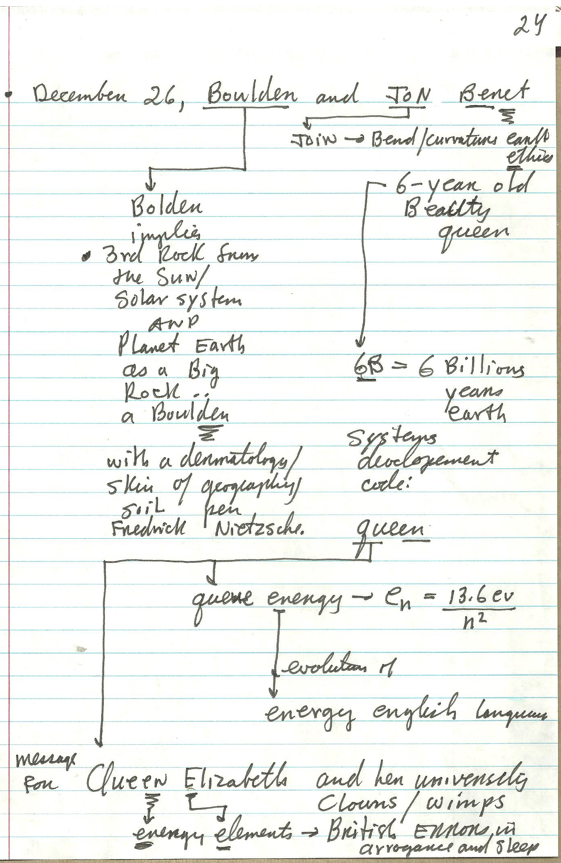 24
• December 26, Boulden and JoN Benet
Join → Bend/curvature earth
ethics
6-year old
Beauty
queen
Bolden
implies
• 3rd Rock from
the Sun/
Solar system
AND
Planet Earth
as a Big
Rock ..
a Boulden
6B = 6 Billions
years
earth
with a dermatology/
skin of geography/
soil pen
Fredrick Nietzsche.
Systems
developement
code:
queen
queue energy → en = 13.6 ev / n²
evolution of
energy english language
message
for Queen Elizabeth and her university
Clowns / wimps
energy elements → British ERRORS in
arrogance and sleep